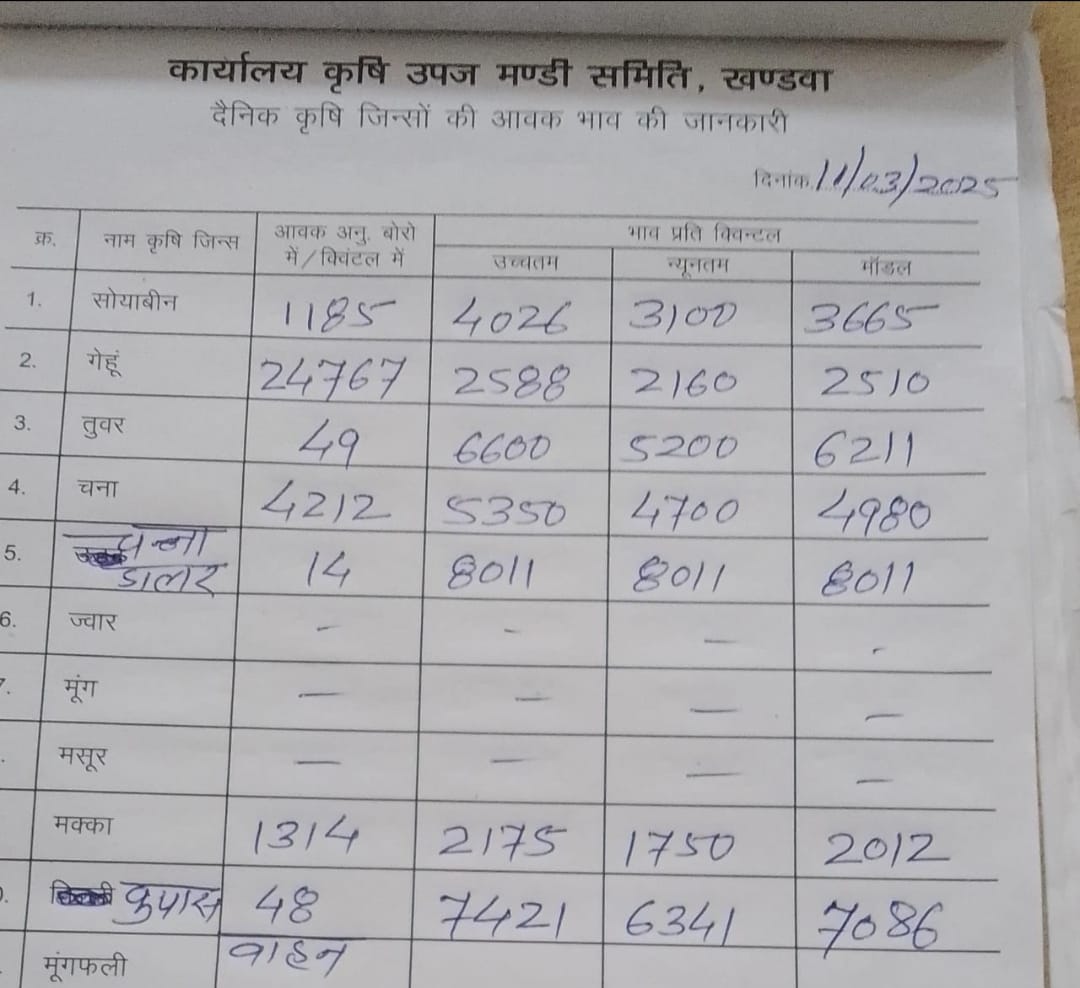 कार्यालय कृषि उपज मण्डी समिति, खण्डवा
दैनिक कृषि जिन्सों की आवक भाव की जानकारी
दिनांक 11/03/2025
क्र. नाम कृषि जिन्स आवक अनु. बोरो में/क्विंटल में भाव प्रति क्विन्टल
उच्चतम न्यूनतम मॉडल
1. सोयाबीन 1185 4026 3100 3665
2. गेहूं 24767 2588 2160 2510
3. तुवर 49 6600 5200 6211
4. चना 4212 5350 4700 4980
5. चना डालर 14 8011 8011 8011
6. ज्वार - - - -
7. मूंग - - - -
मसूर - - - -
मक्का 1314 2175 1750 2012
कपास 48 7421 6341 7086
मूंगफली वाहन